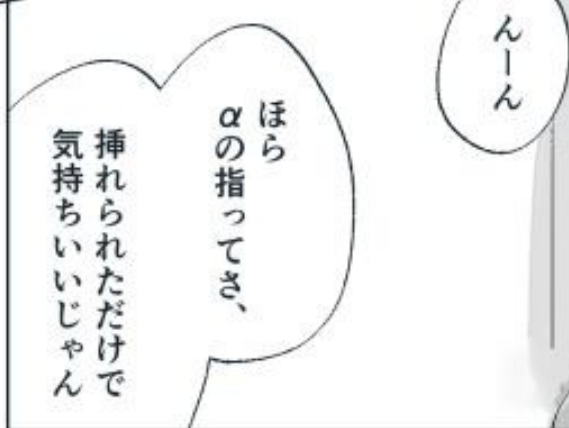 んーん
ほら
αの指ってさ、
挿れられただけで
気持ちいいじゃん